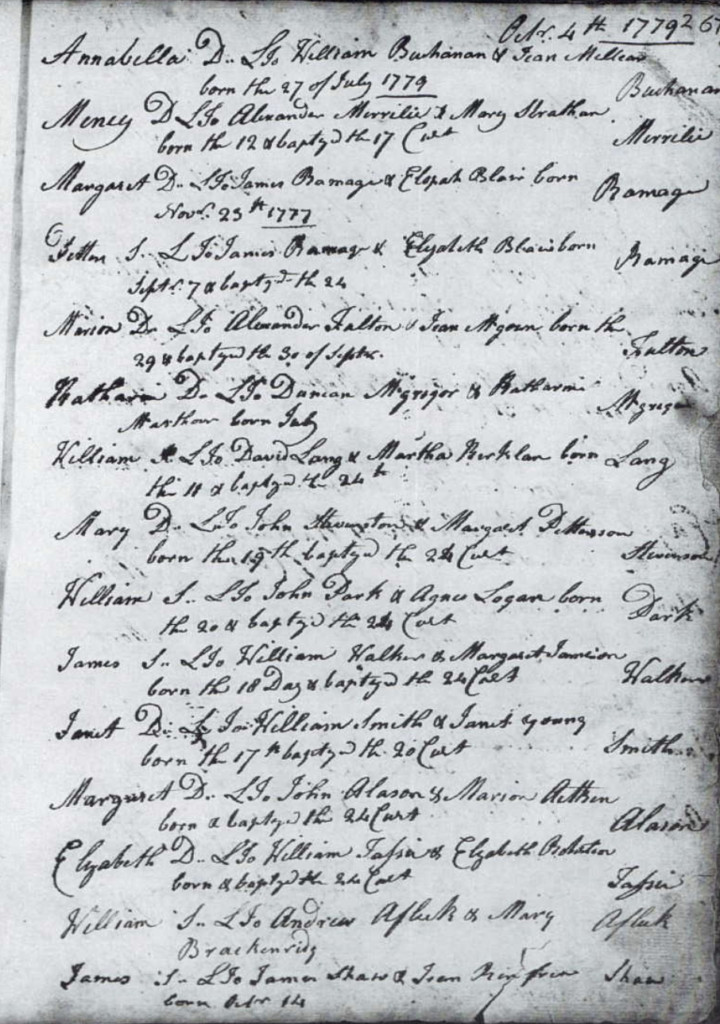 Octr. 4th 1779 2 6
Annabella D.. L To William Buchanan & Jean
born the 27 of July 1779 Buchanan
D L To Alexander Merrilie & Mary Strathan
born the 12 & baptyd the 17 Curt Merrilie
Margaret D.. L To James Ramage & Blair born Ramage
Novr. 23th 1777
S.. L To James Ramage & Elyzabeth Blair born Ramage
Septr. 7 & baptyd the 24
Marion D.. L To Alexander Fulton & Jean Mcgoun born the
29 & baptyd the 30 of Septr. Fulton
Katharin D.. L To Duncan Mcgrigor & Katharin Mcgrigor
born July
William S.. L To David Lang & Martha born Lang
the 11 & baptyd the 24th
Mary D.. L To John & Margaret
born the 19th baptyd the 24 Curt Stevenson
William S.. L To John Park & Agnes Logan born Park
the 20 & baptyd the 24 Curt
James S.. L To William Walker & Margaret
born the 18 Day & baptyd the 24 Curt Walker
Janet D.. L To William Smith & Janet young
born the 17th baptyd the 20 Curt Smith
Margaret D.. L To John Alason & Marion Aitken
born & baptyd the 24 Curt Alason
Elyzabeth D.. L To William & Elyzabeth
born & baptyd the 24 Curt
William S.. L To Andrew Afleck & Mary Afleck
Brackenridg
James S.. L To James Shaw & Jean Shaw
born Octr 14